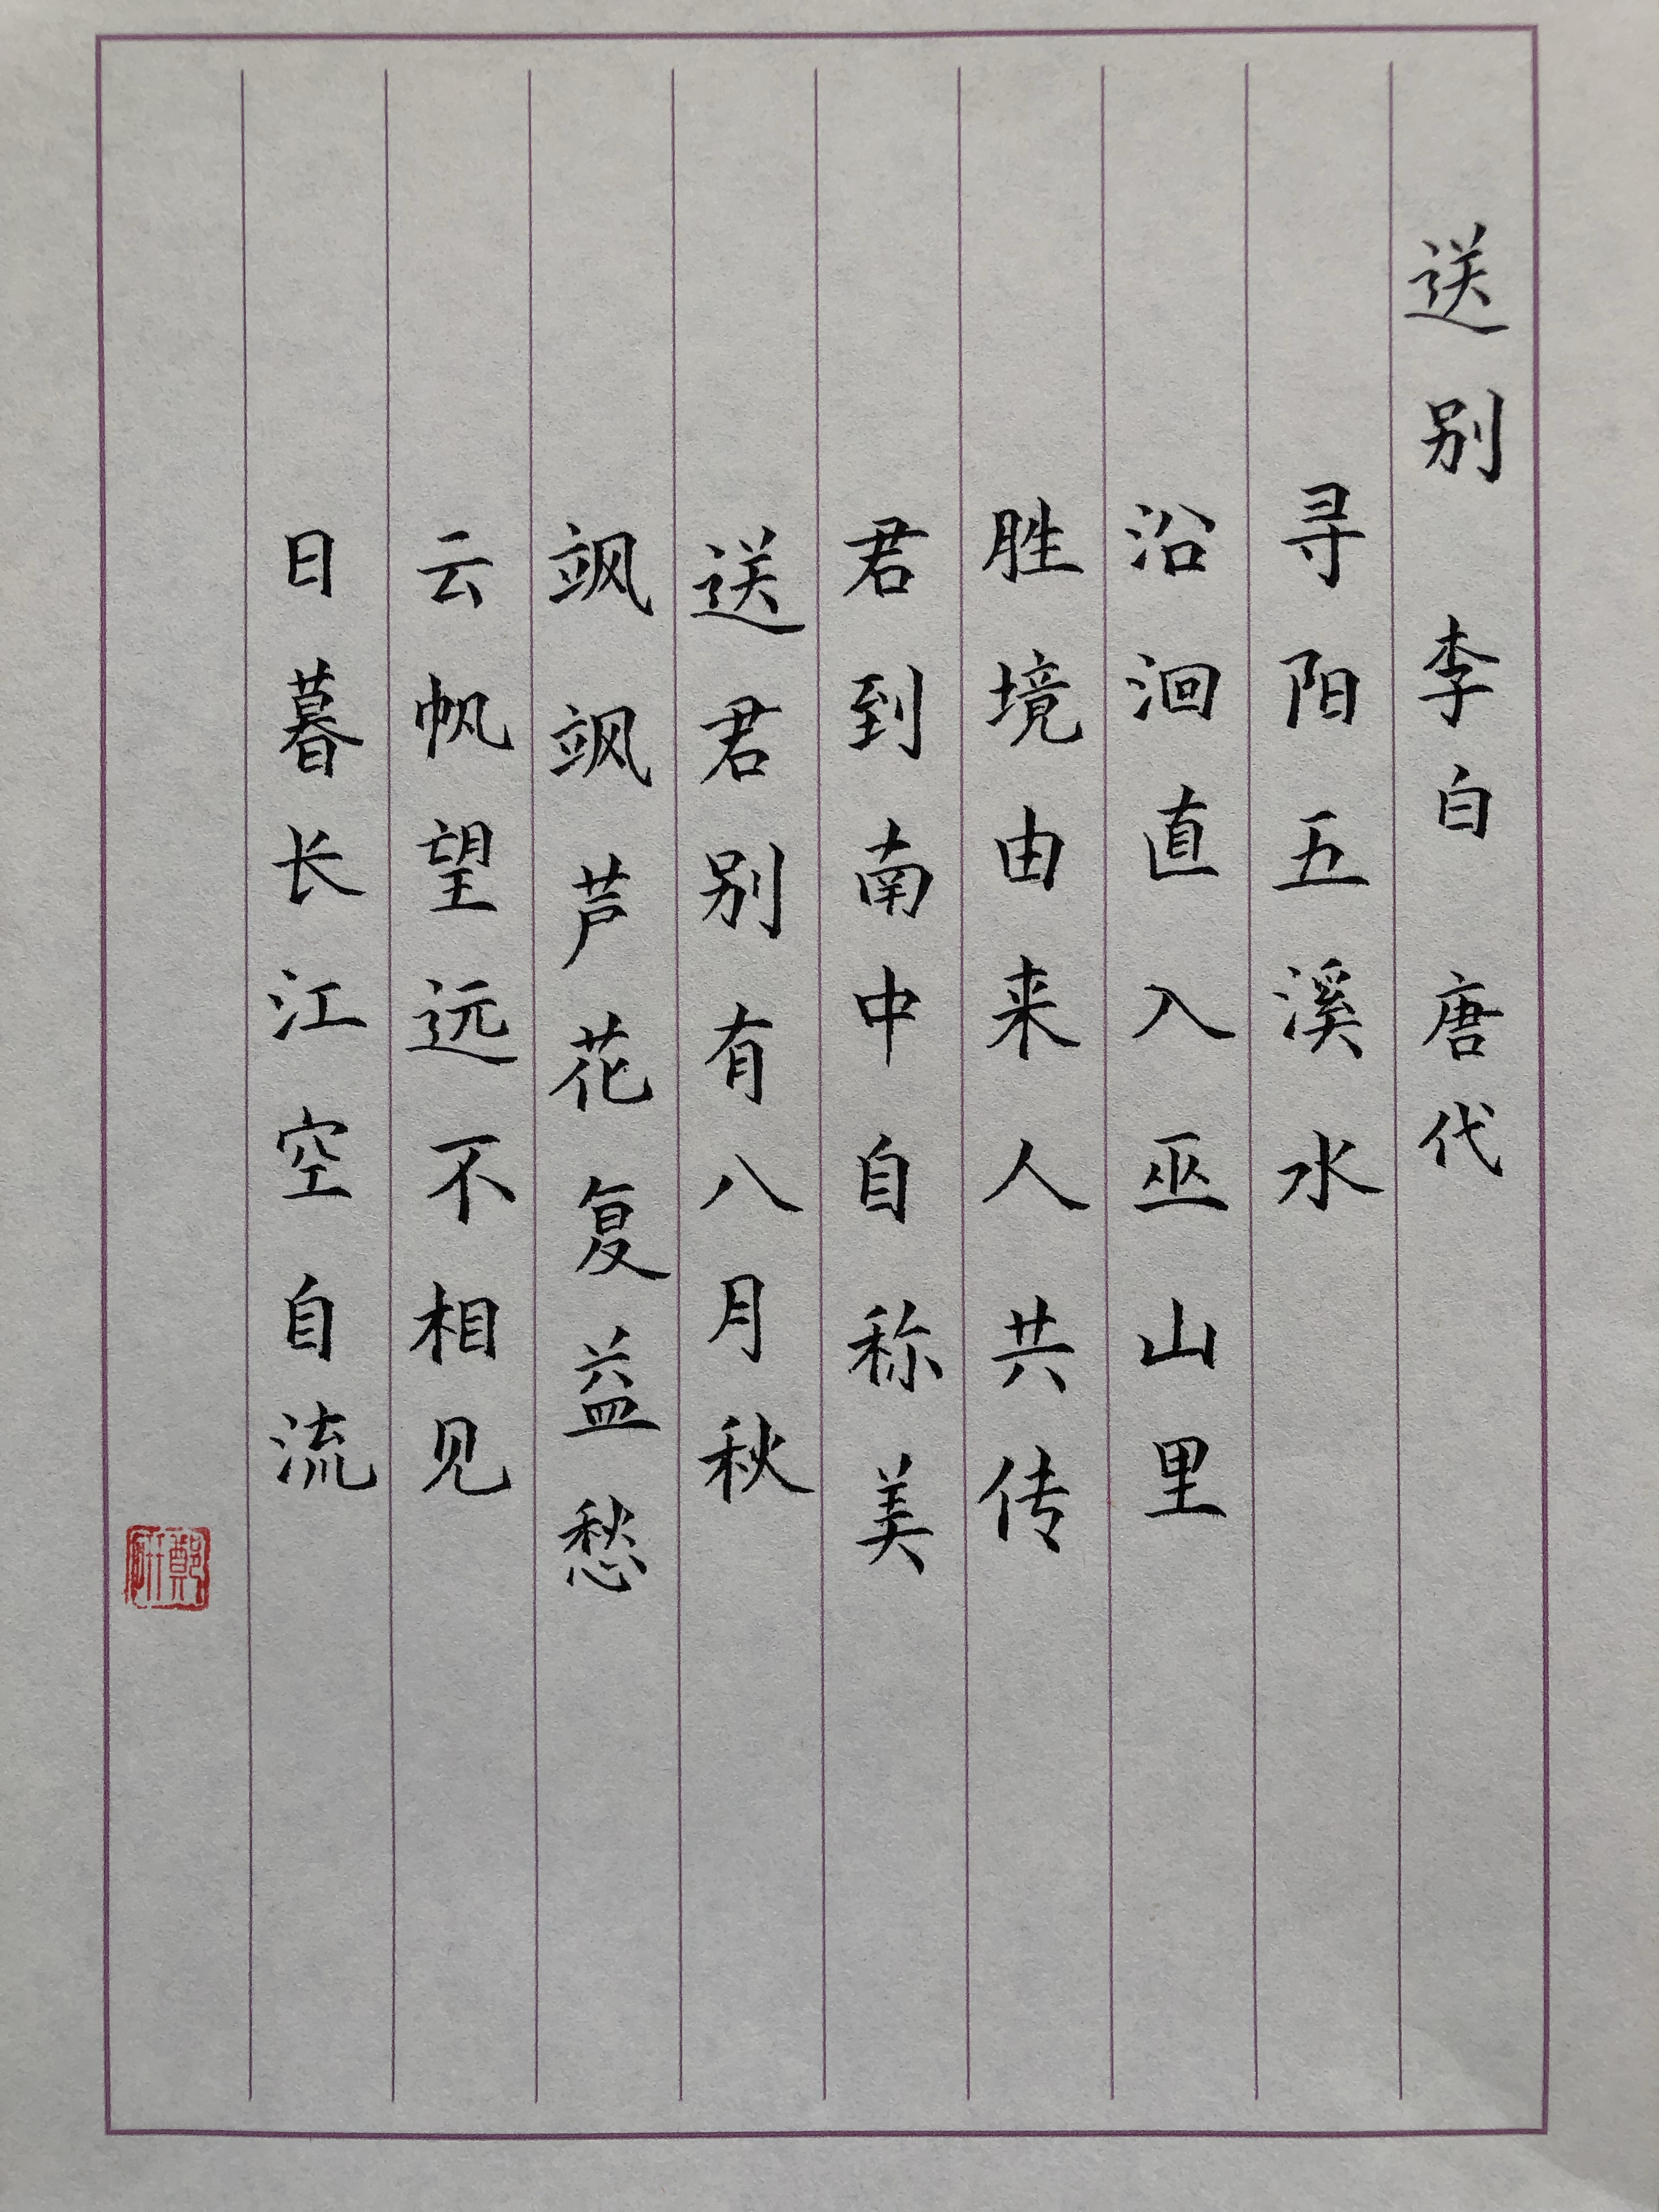 送别 李白 唐代
寻阳五溪水
沿洄直入巫山里
胜境由来人共传
君到南中自称美
送君别有八月秋
飒飒芦花复益愁
云帆望远不相见
日暮长江空自流